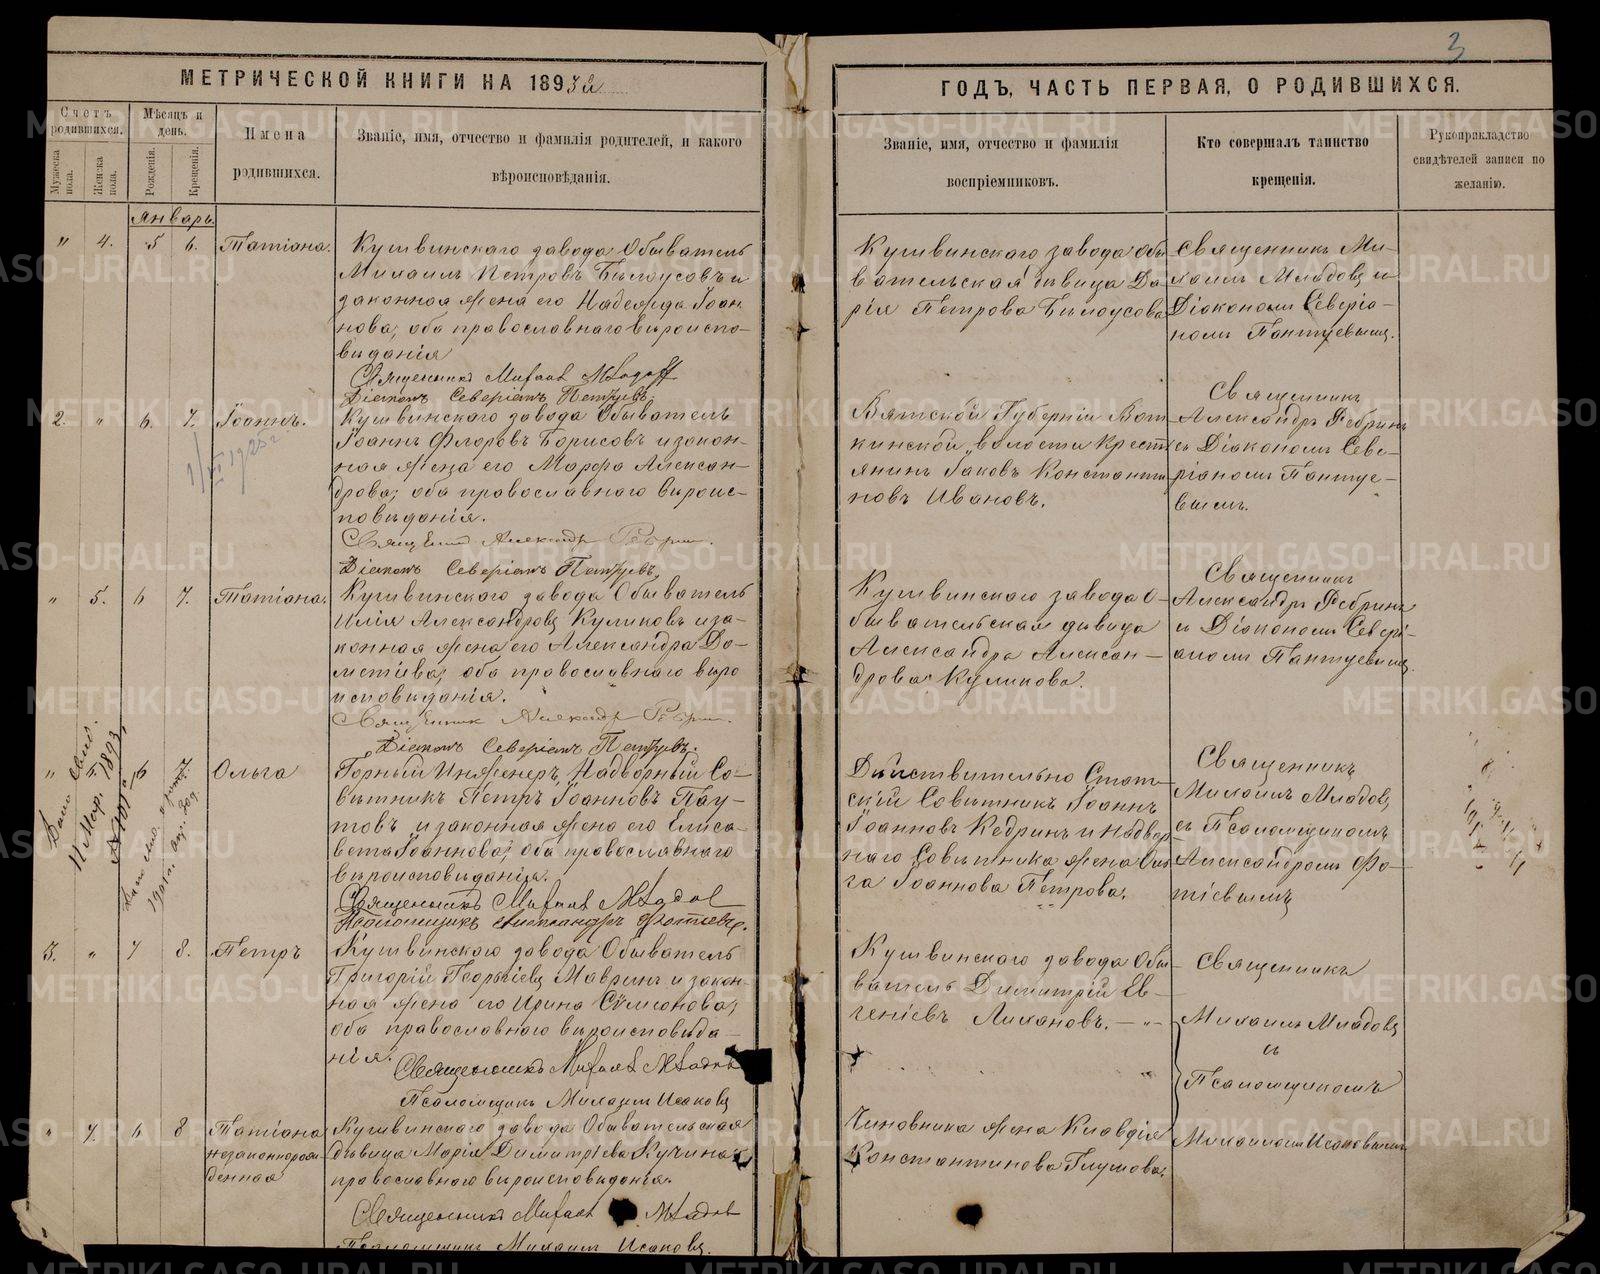 3
МЕТРИЧЕСКОЙ КНИГИ НА 1893 й
ГОДЪ, ЧАСТЬ ПЕРВАЯ, О РОДИВШИХСЯ.
Счетъ родившихся.
Мужеска пола.
Женска пола.
Мѣсяцъ и день.
Рожденія.
Крещенія.
Имена родившихся.
Званіе, имя, отчество и фамилія родителей, и какого
вѣроисповѣданія.
Званіе, имя, отчество и фамилія
воспріемниковъ.
Кто совершалъ таинство
крещенія.
Рукоприкладство
свидѣтелей записи по
желанію.
Январь.
" 4. 5 6. Татіана.
Кушвинскаго завода Обыватель
Михаилъ Петровъ Бѣлоусовъ и
законная жена его Надежда Іоан
нова; оба православнаго вѣроиспо-
вѣданія
Священникъ Михаилъ Младовъ
Діаконъ Северіанъ
Кушвинскаго завода Обы
вательская дѣвица Да
рія Петрова Бѣлоусова
Священникъ Ми-
хаилъ Младовъ и
Діакономъ Северіа-
номъ Пантуевымъ.
2. " 6. 7. Іоаннъ.
Кушвинскаго завода Обыватель
Іоаннъ Флоровъ Борисовъ и закон-
ная жена его Марфа Алексан-
дрова; оба православнаго вѣроис-
повѣданія.
Священникъ Александръ
Діаконъ Северіанъ
Вятской Губерніи Вот
кинской волости крест
янинъ Іаковъ Константи
новъ Ивановъ.
Священникъ
Александръ Ребринъ
съ Діакономъ Севе-
ріаномъ Пантуе-
вымъ.
" 5. 6 7. Татіана.
Кушвинскаго завода Обыватель
Илія Александровъ Куликовъ и за-
конная жена его Александра До-
метіева; оба православнаго вѣро
исповѣданія.
Священникъ Александръ
Діаконъ Северіанъ
Кушвинскаго завода О-
бывательская дѣвица
Александра Алексан-
дрова Куликова.
Священникъ
Александръ Ребринъ
и Діакономъ Севері-
аномъ Пантуевымъ.
" 6 Ольга
Горный Инженеръ, Надворный Со-
вѣтникъ Петръ Іоанновъ Пау-
товъ и законная жена его Елиса-
вета Іоаннова; оба православнаго
вѣроисповѣданія.
Священникъ Михаилъ Младовъ
Псаломщикъ Александръ Фотіевъ.
Дѣйствительно Стат-
скій Совѣтникъ Іоаннъ
Іоанновъ Кедринъ и Надвор
наго Совѣтника жена Оль
га Іоаннова Петрова.
Священникъ
Михаилъ Младовъ
съ Псаломщикомъ
Александромъ Фо-
тіевымъ
3. " 7 8. Петръ
Кушвинскаго завода Обыватель
Григорій Георгіевъ Мавринъ и закон-
ная жена его Ирина Сѵмеонова;
оба православнаго вѣроисповѣда-
нія.
Священникъ Михаилъ Младовъ
Псаломщикъ Михаилъ Исаковъ
Кушвинскаго завода Обы-
ватель Димитрій Ев-
геніевъ Лихановъ. — "–
Священникъ
Михаилъ Младовъ
съ
Псаломщикомъ
Михаиломъ Исаковымъ
" 7. 6 8 Татіана
незаконнорож-
денная
Кушвинскаго завода Обывательская
дѣвица Марія Димитріева Кучина
православнаго вѣроисповѣданія.
Священникъ Михаилъ Младовъ
Псаломщикъ Михаилъ Исаковъ.
Чиновника жена Клавдія
Константинова Глумова.
METRIKI.GASO-URAL.RU